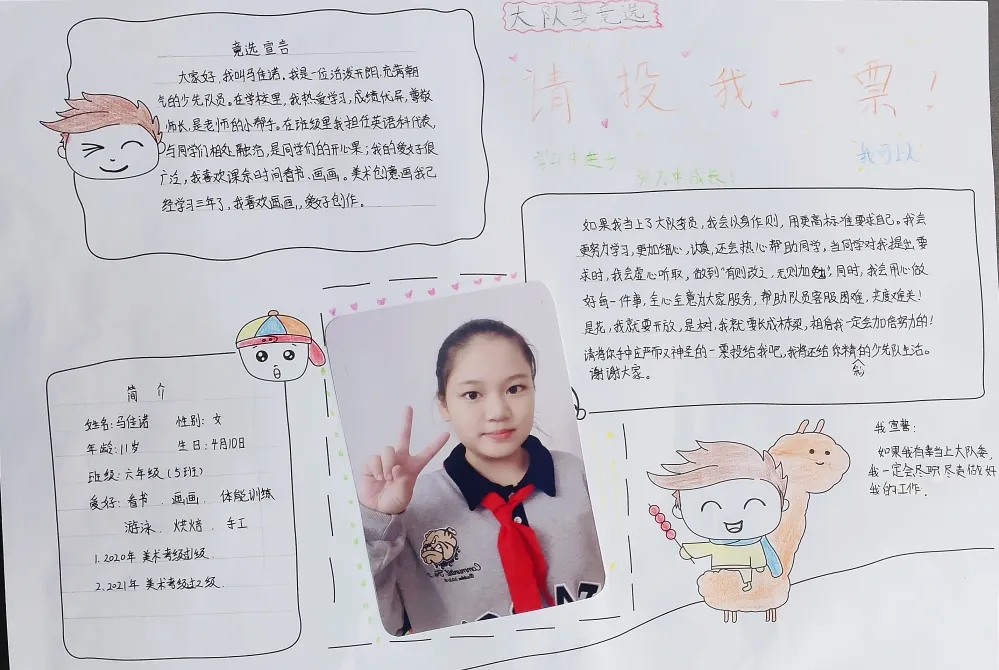 大队委竞选
请投我一票！
学习中进步
努力中成长！
我可以
竞选宣言
大家好，我叫马佳诺。我是一位活泼开朗，充满朝
气的少先队员。在学校里，我热爱学习，成绩优异，尊敬
师长，是老师的小帮手。在班级里我担任英语科代表，
与同学们相处融洽，是同学们的开心果；我的爱好很
广泛，我喜欢课余时间看书、画画。美术创意画我已
经学习三年了，我喜欢画画，爱好创作。
如果我当上了大队委员，我会以身作则，用更高标准要求自己。我会
更努力学习，更加细心，认真，还会热心帮助同学，当同学对我提出要
求时，我会虚心听取，做到“有则改之，无则加勉”，同时，我会用心做
好每一件事，全心全意为大家服务，帮助队员客服困难，共度难关！
是花，我就要开放，是树，我就要长成栋梁，相信我一定会加倍努力的！
请将你手中庄严而又神圣的一票投给我吧，我将还给你精彩的少先队生活。
谢谢大家。
简 介
姓名：马佳诺 性别：女
年龄：11岁 生日：4月10日
班级：六年级（5班）
爱好：看书、画画、体能训练
游泳、烘焙、手工
1.2020年 美术考级过1级.
2.2021年 美术考级过2级.
我宣誓：
如果我有幸当上大队委，
我一定会尽职尽责做好
我的工作.